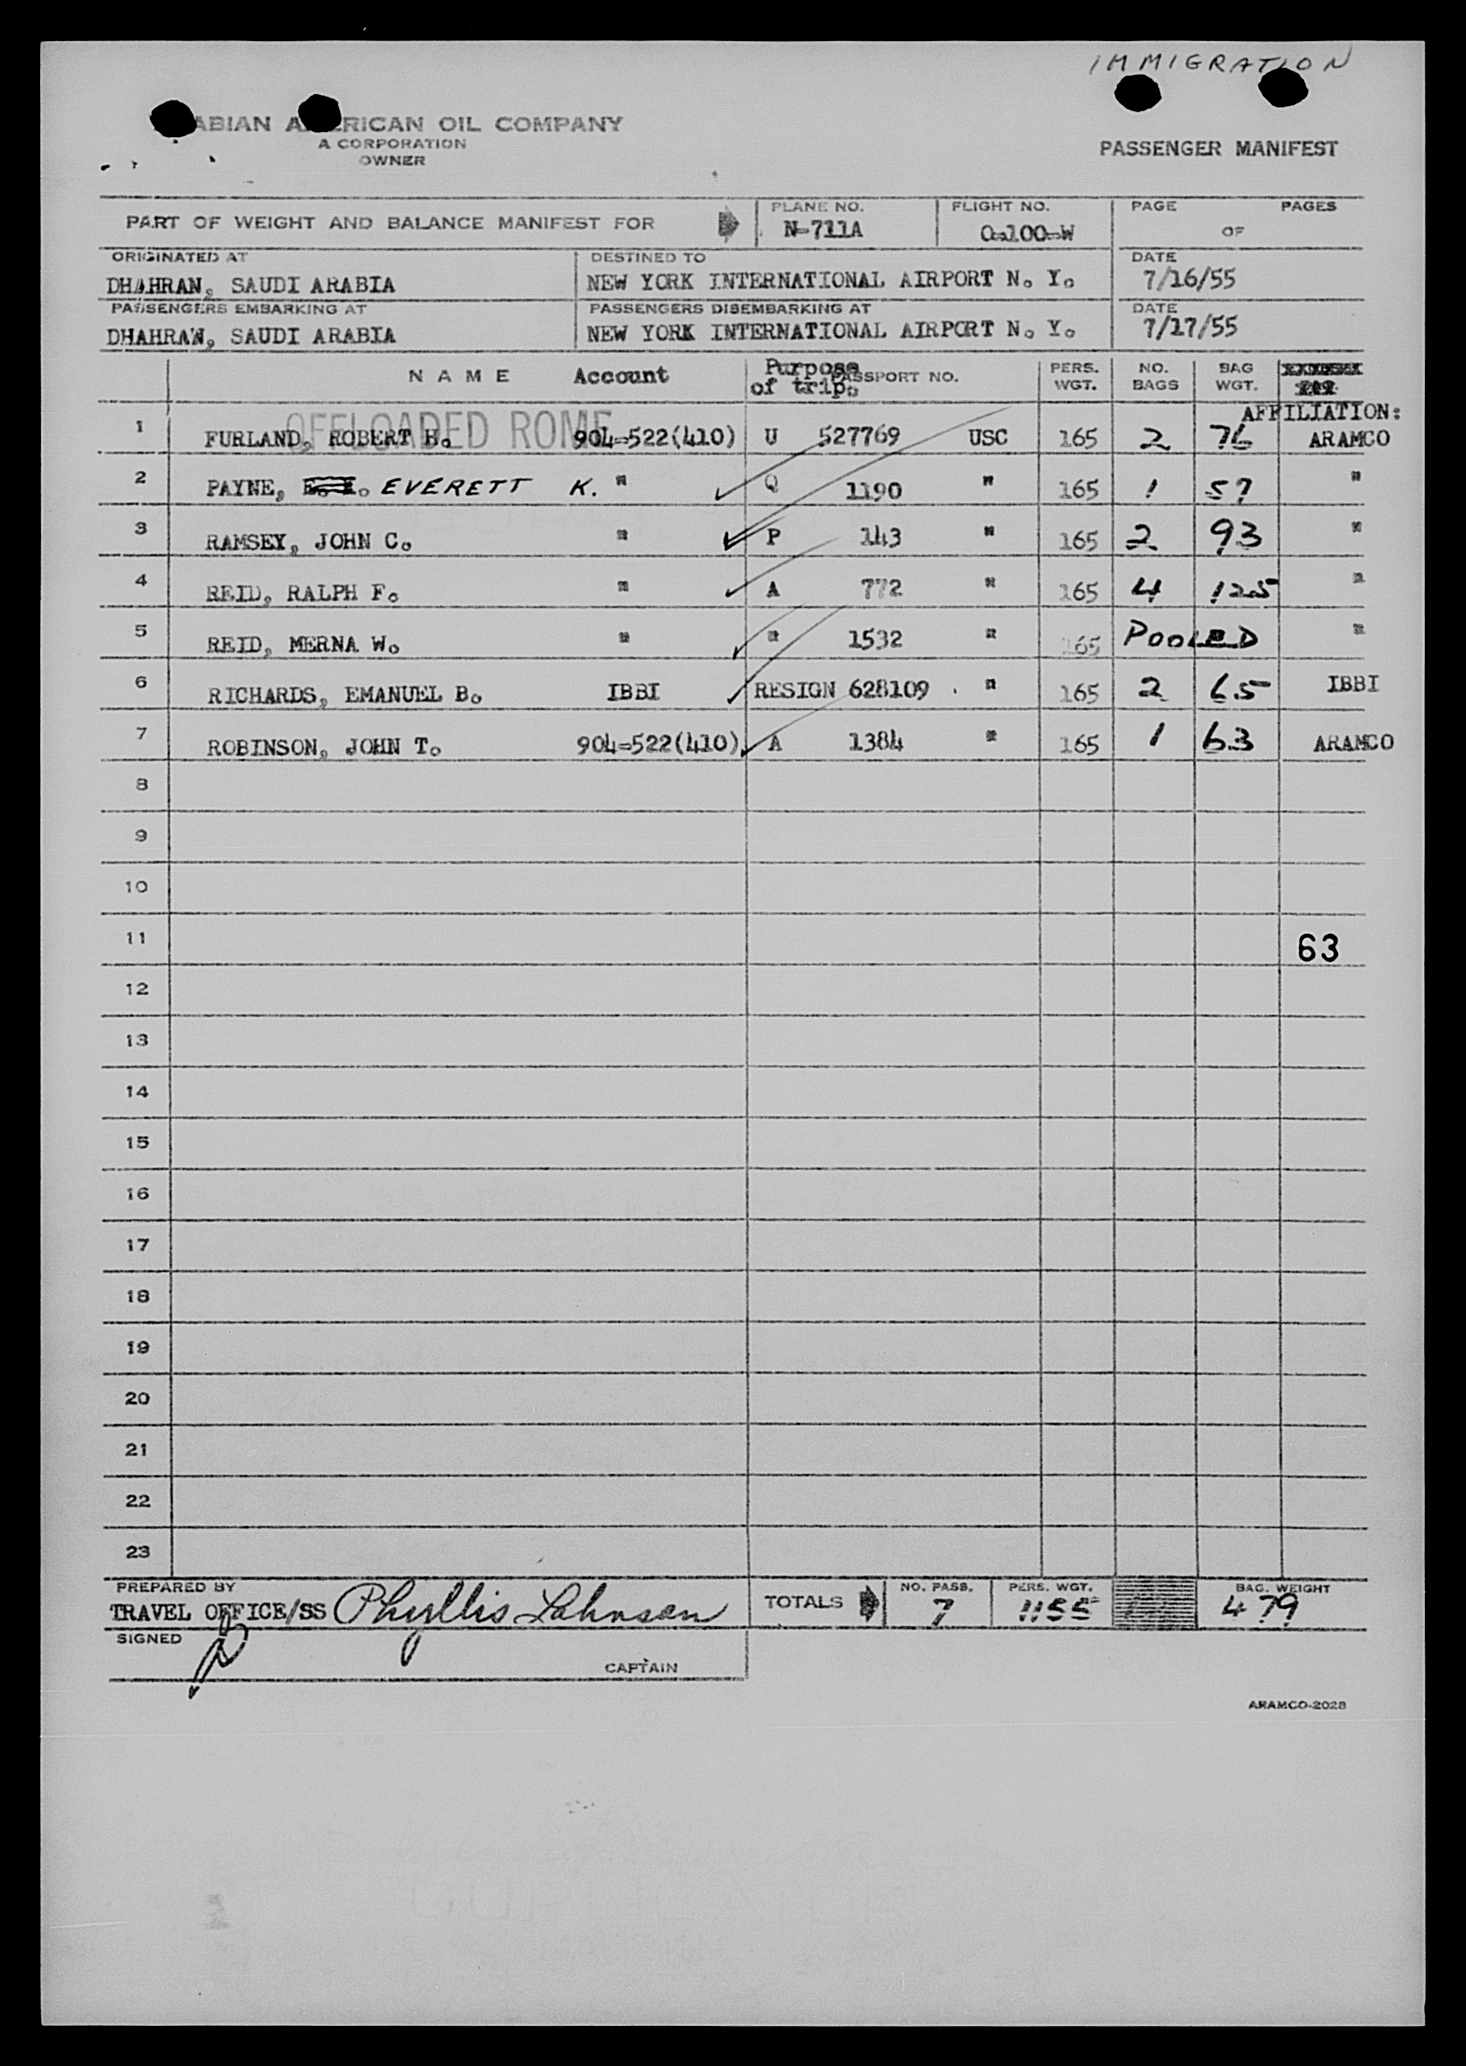 IMMIGRATION
ABIAN AMERICAN OIL COMPANY
A CORPORATION
OWNER
PASSENGER MANIFEST
PART OF WEIGHT AND BALANCE MANIFEST FOR PLANE NO. N-711A FLIGHT NO. O-100-W PAGE OF PAGES
ORIGINATED AT DESTINED TO DATE
DHAHRAN, SAUDI ARABIA NEW YORK INTERNATIONAL AIRPORT N. Y. 7/16/55
PASSENGERS EMBARKING AT PASSENGERS DISEMBARKING AT DATE
DHAHRAN, SAUDI ARABIA NEW YORK INTERNATIONAL AIRPORT N. Y. 7/17/55
NAME Account Purpose of trip. PASSPORT NO. PERS. WGT. NO. BAGS BAG WGT.
AFFILIATION:
OFFLOADED ROME
1 FURLAND, ROBERT H. 904-522(410) U 527769 USC 165 2 76 ARAMCO
2 PAYNE, EVERETT K. " Q 1190 " 165 1 57 "
3 RAMSEY, JOHN C. " P 143 " 165 2 93 "
4 REID, RALPH F. " A 772 " 165 4 125 "
5 REID, MERNA W. " " 1532 " 165 POOLED "
6 RICHARDS, EMANUEL B. IBBI RESIGN 628109 " 165 2 65 IBBI
7 ROBINSON, JOHN T. 904-522(410) A 1384 " 165 1 63 ARAMCO
8
9
10
11 63
12
13
14
15
16
17
18
19
20
21
22
23
PREPARED BY
TRAVEL OFFICE/SS Phyllis Johnson TOTALS NO. PASS. 7 PERS. WGT. 1155 BAG. WEIGHT 479
SIGNED
CAPTAIN
ARAMCO-2028